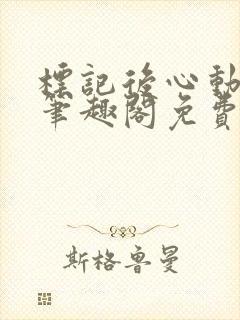 標記後心動
筆趣閣免費
斯格魯曼